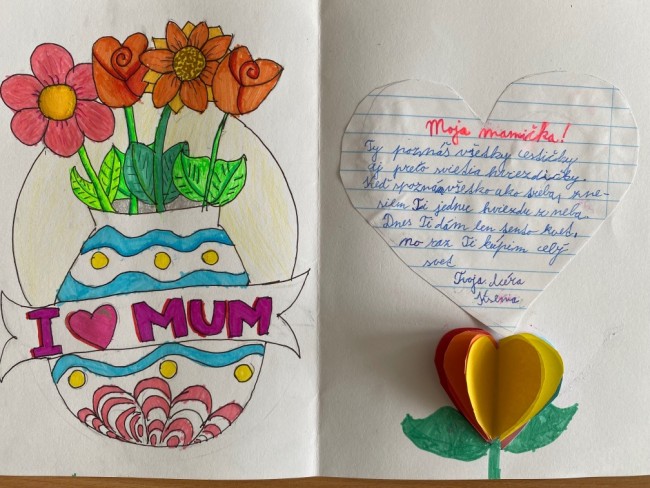 I ♥ MUM
Moja mamička!
Ty poznáš všetky cestičky
aj preto svietia hviezdičky
Keď spoznám všetko ako treba, zne-
siem Ti jednu hviezdu z neba.
Dnes Ti dám len tento kvet,
no raz Ti kúpim celý
svet
Tvoja dcéra